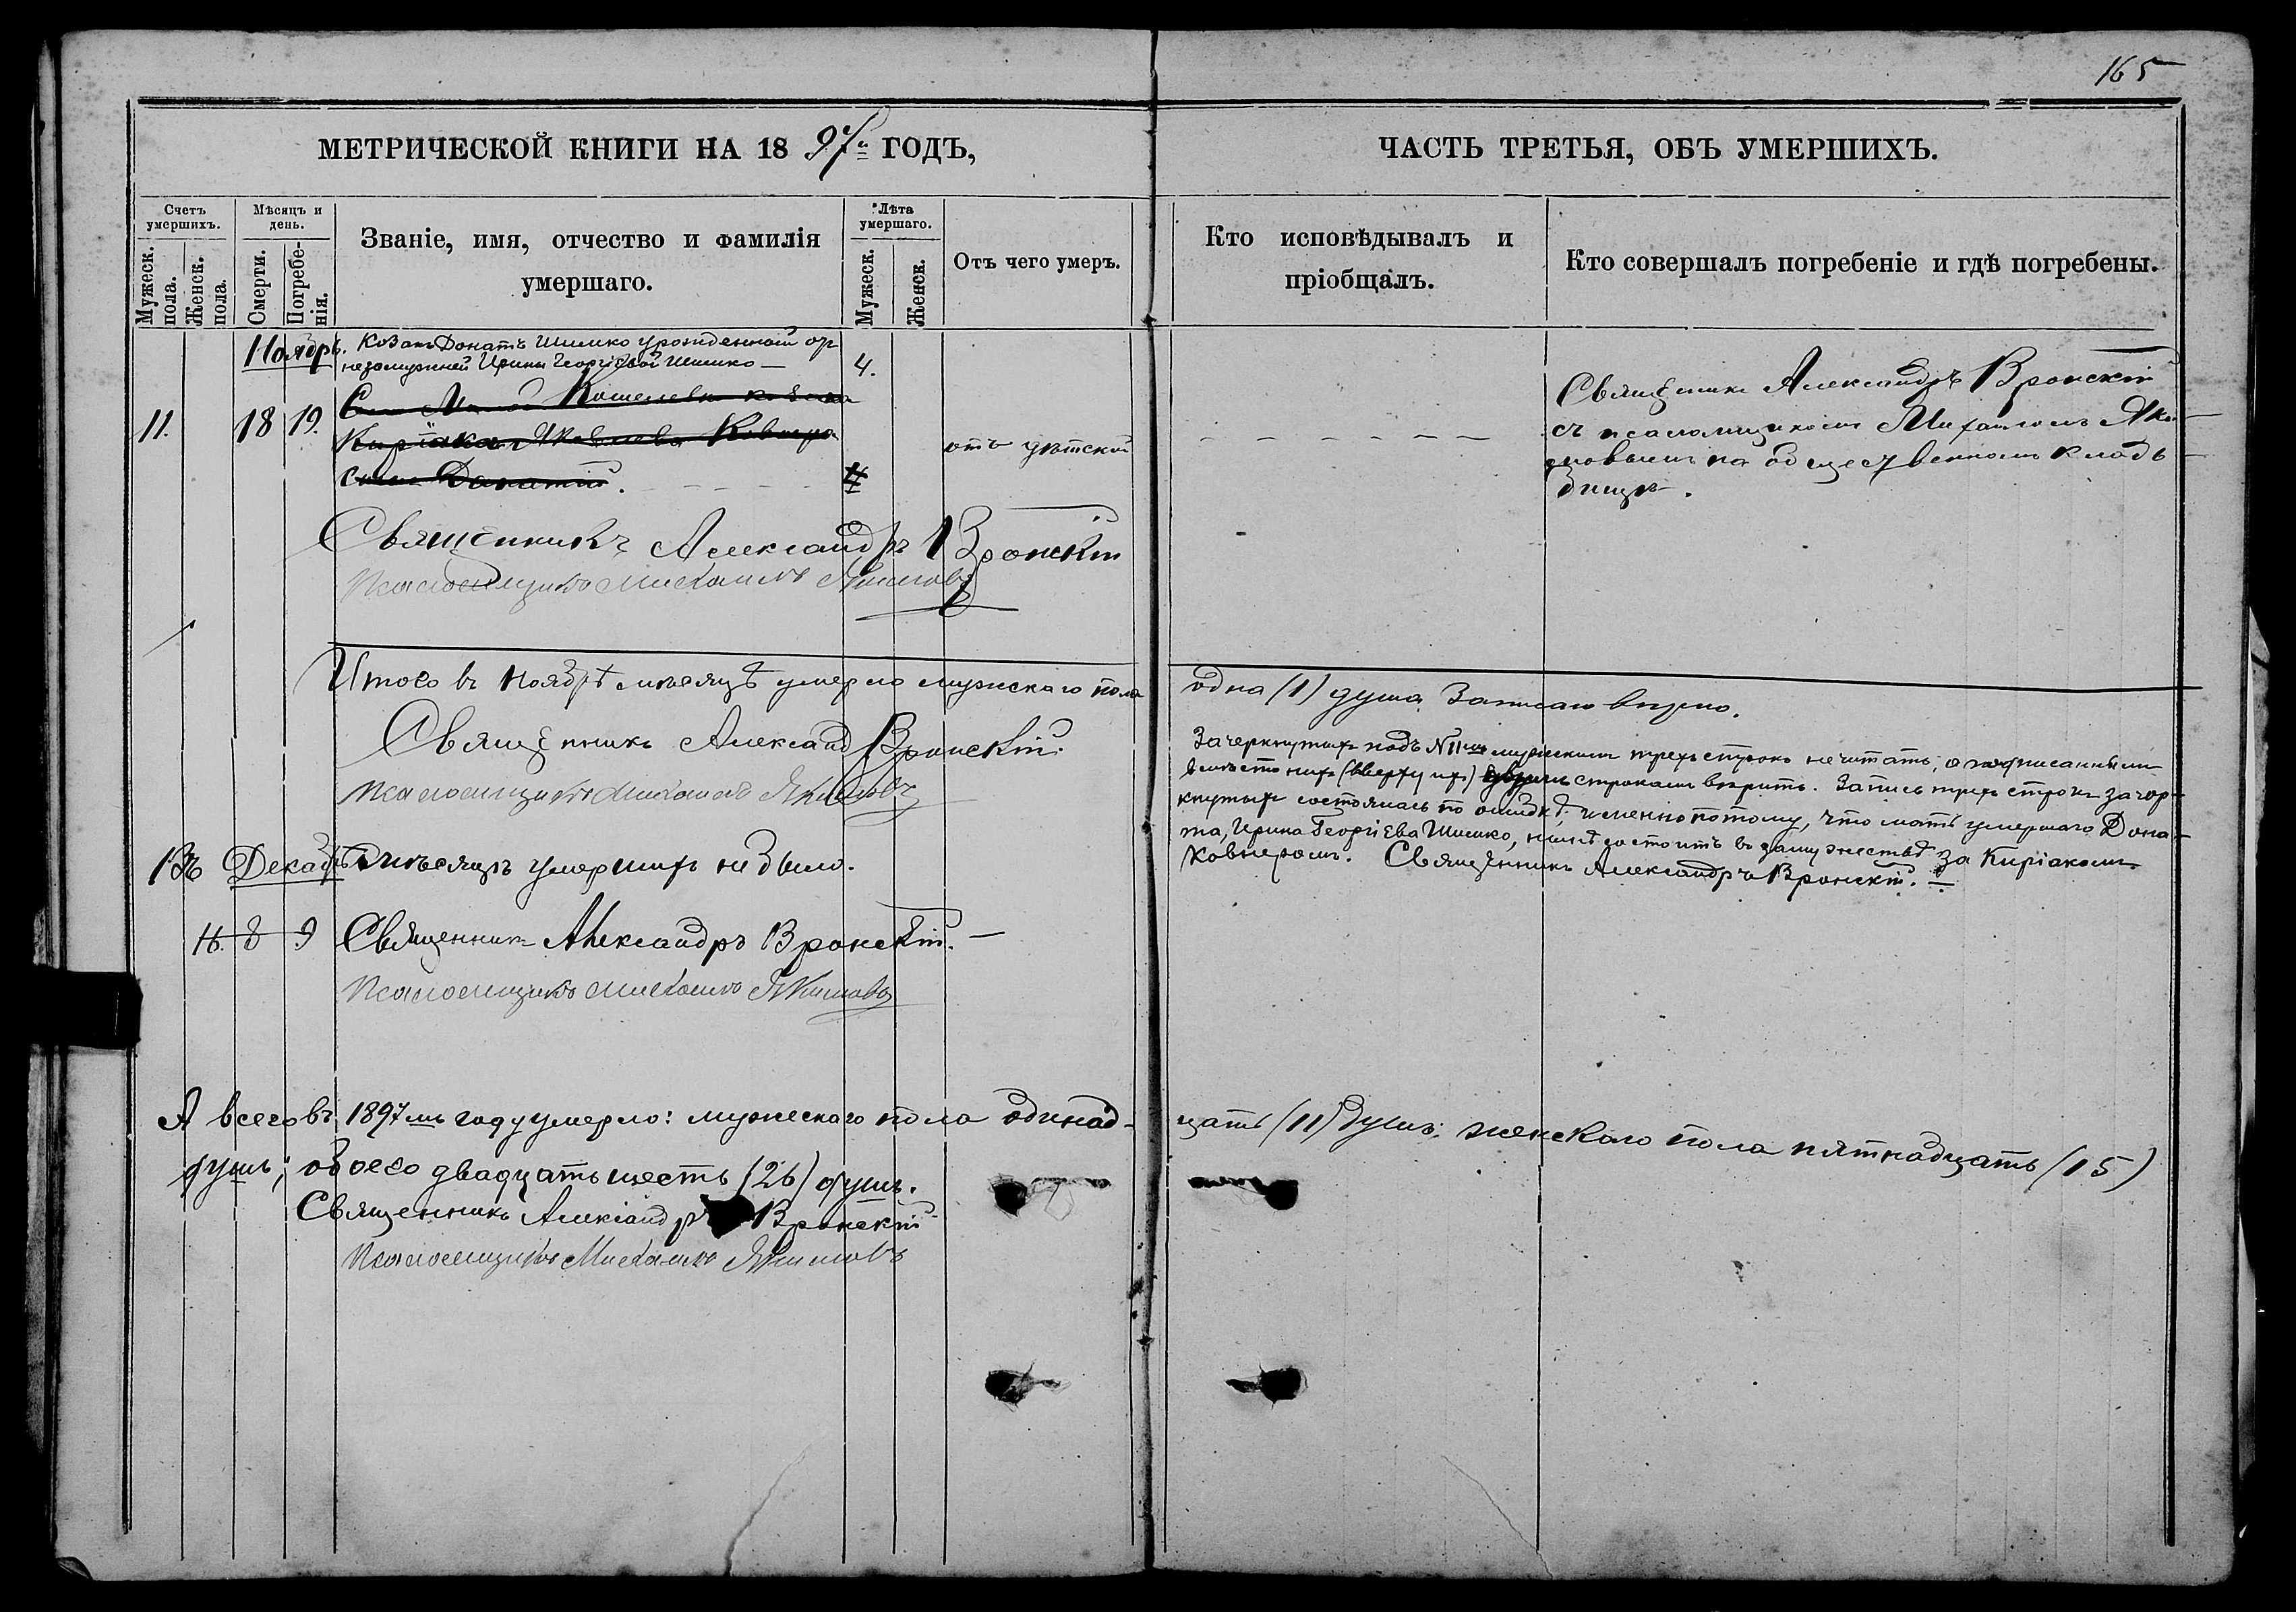 165
МЕТРИЧЕСКОЙ КНИГИ НА 18 97й ГОДЪ,
ЧАСТЬ ТРЕТЬЯ, ОБЪ УМЕРШИХЪ.
Счетъ умершихъ.
Мужеск. пола.
Женск. пола.
Мѣсяцъ и день.
Смерти.
Погребенія.
Званіе, имя, отчество и фамилія
умершаго.
Лѣта умершаго.
Мужеск.
Женск.
Отъ чего умеръ.
Кто исповѣдывалъ и
пріобщалъ.
Кто совершалъ погребеніе и гдѣ погребены.
Ноябрь.
Козакъ Донатъ Шишко урожденный от
незамужней Ирины Георгіевой Шишко —
4.
11. 18 19.
Кошелевки козака
Киріака Яковлева Ковнера
сынъ Донатій.
4
Священникъ Александръ Вронскій
съ псаломщикомъ Михаиломъ Яки-
мовымъ на общественномъ кладб
бищѣ.
Священникъ Александръ Вронскій
Псаломщикъ Михаилъ Якимовъ
Итого въ Ноябрѣ мѣсяцѣ умерло мужскаго пола одна (1) душа. Записано вѣрно.
Священникъ Александ Вронскій.
Псаломщикъ Михаилъ Якимовъ
Зачеркнутыхъ подъ №11мъ мужскимъ трехъ строкъ не читать, а надписаннымъ
вмѣсто нихъ (вверху ихъ) двумъ строкамъ вѣрить. Запись трехъ строкъ зачер-
кнутыхъ состоялась по ошибкѣ, именно потому, что мать умершаго Дона-
та, Ирина Георгіева Шишко, нынѣ состоитъ въ замужествѣ за Киріакомъ
Ковнеромъ. Священникъ Александръ Вронскій.
Въ Декабрѣ мѣсяцѣ умершихъ не было.
16. 8 9
Священникъ Александръ Вронскій. —
Псаломщикъ Михаилъ Якимовъ
А всего въ 1897мъ году умерло: мужескаго пола одинад-цать (11) душъ; женскаго пола пятнадцать (15)
душъ; обоего двадцать шесть (26) душъ.
Священникъ Александръ Вронскій
Псаломщикъ Михаилъ Якимовъ